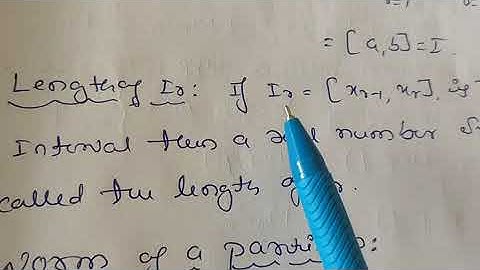 = [a, b] = I.
Length of Ir: If Ir = [xr-1, xr], is
Interval then a real number
called the length of Ir.
Norm of a partition: